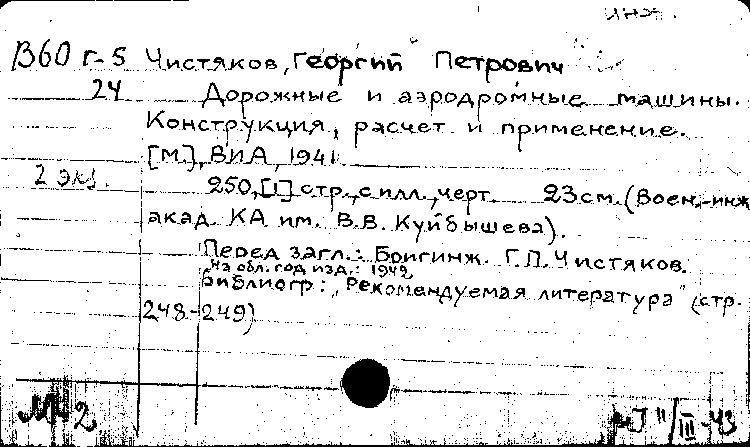 инж.
В60 Г-5 Чистяков, Георгий Петрович
24 Дорожные и аэродромные машины.
Конструкция, расчет и применение.
[М.], ВИА, 1941.
2 экз. 250, [1] стр., с илл., черт. 23 см. (Воен.-инж
акад. КА им. В.В. Куйбышева).
Перед загл.: Бригинж. Г.П. Чистяков.
На обл. год изд.: 1942
Библиогр: „Рекомендуемая литература" (стр.
248-249)